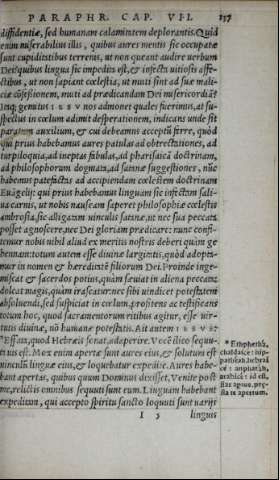 PARAPHR. CAP. VII. 137
diffidentiæ, sed humanam calamitatem deplorantis. Quid
enim miserabilius illis, quibus aures mentis sic occupatæ
sunt cupiditatibus terrenis, ut non queant audire uerbum
Dei? quibus lingua sic impedita est, & infecta uitiosis affe-
ctibus, ut non sapiant cœlestia, ut muti sint ad suæ mali-
ciæ cõfessionem, muti ad prædicandam Dei misericordiã?
Inq; gemitus IESV nos admonet quales fuerimus, at su-
spectus in cœlum adimit desperationem, indicans unde sit
paratum auxilium, & cui debeamus acceptũ ferre, quod
qui prius habebamus aures patulas ad obtrectationes, ad
turpiloquia, ad ineptas fabulas, ad pharisaicã doctrinam,
ad philosophorum dogmata, ad satanæ suggestiones, nũc
habemus patefactas ad accipiendam cœlestem doctrinam
Euãgelij: qui prius habebamus linguam sic infectam sali-
ua carnis, ut nobis nauseam saperet philosophiæ cœlestis
ambrosia, sic alligatam uinculis satanæ, ut nec sua peccata
posset agnoscere, nec Dei gloriam prædicare: nunc confi-
temur nobis nihil aliud ex meritis nostris deberi quàm ge
hennam: totum autem esse diuinæ largitatis, quòd adopta-
mur in nomen & hæreditatẽ filiorum Dei. Proinde inge-
miscat & sacerdos potius, quàm sæuiat in aliena peccata:
doleat magis, quàm irascatur: nec sibi uindicet potestatem
absoluendi, sed suspiciat in cœlum, profitens ac testificans
totum hoc, quod sacramentorum ritibus agitur, esse uir-
tutis diuinæ, nõ humanæ potestatis. Ait autem IESVS:
*Effata, quod Hebræis sonat, adaperire. Vocẽ ilico sequu-
tus est. Mox enim apertæ sunt aures eius, & solutum est
uinculũ linguæ eius, & loquebatur expeditè. Aures habe-
bant apertas, quibus quum Dominus dixisset, Venite post
me, relictis omnibus sequuti sunt eum. Linguam habebant
expeditam, qui accepto spiritu sancto loquuti sunt uarijs
I 5 linguis
* Ethphetha,
chaldaicè:
hebrai
cè:
arabicè: id est,
fiat aptus,
sta te apertum.